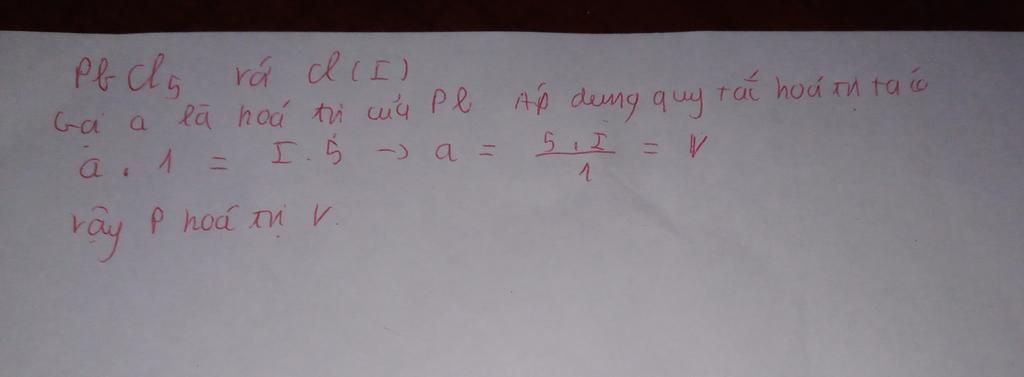 Pb Cl5 và Cl (I)
Gọi a là hoá trị của Pb Áp dụng quy tắc hoá trị ta có
a . 1 = I . 5 → a = 5 . I / 1 = V
vậy P hoá trị V.